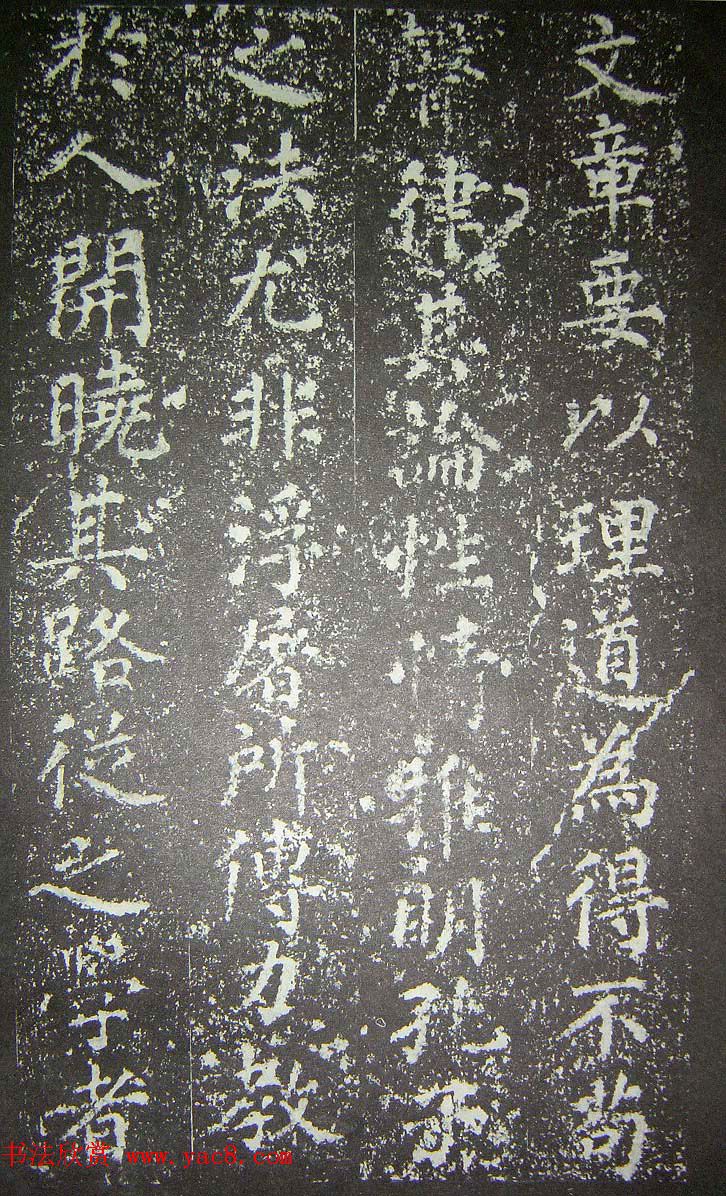 文章要以理道為得不苟
辭律其論性情雅明孔子
之法尤非浮屠所傳力教
於人開曉其路從之學者
书法欣赏 www.yac8.com